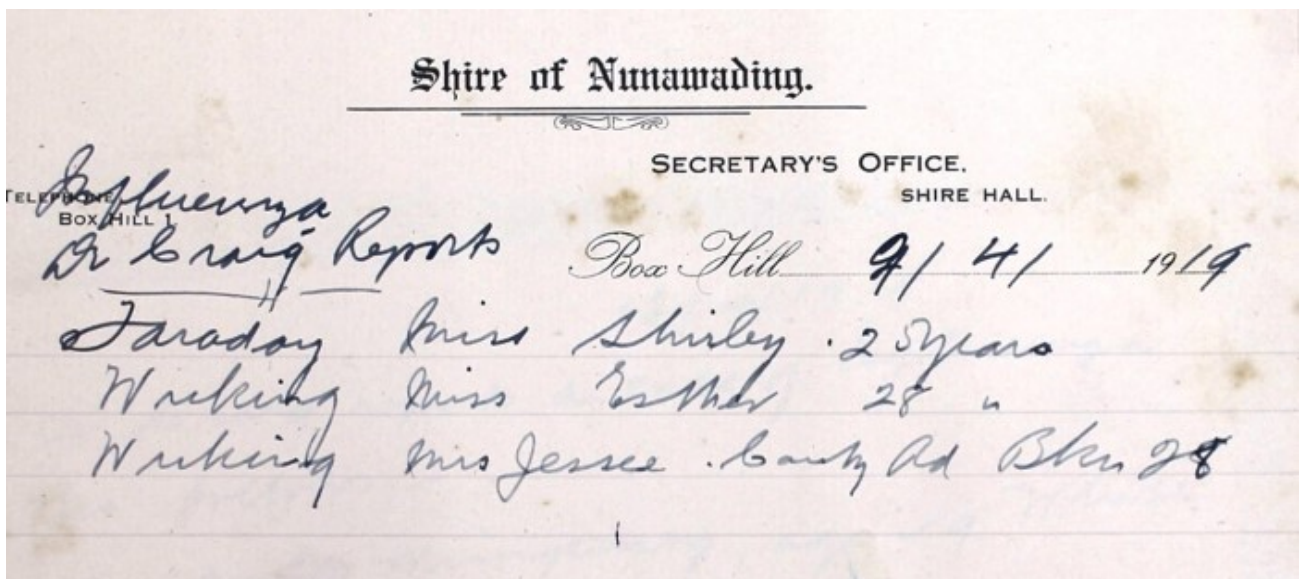 Shire of Nunawading.
SECRETARY'S OFFICE.
SHIRE HALL.
TELEPHONE
BOX HILL 1
Influenza
Dr Craig Reports
Box Hill 9/4/1919
Faraday Miss Shirley . 25 years
Wreking Miss Esther 28 "
Wreking Mrs Jessee . Rd Bkn 28